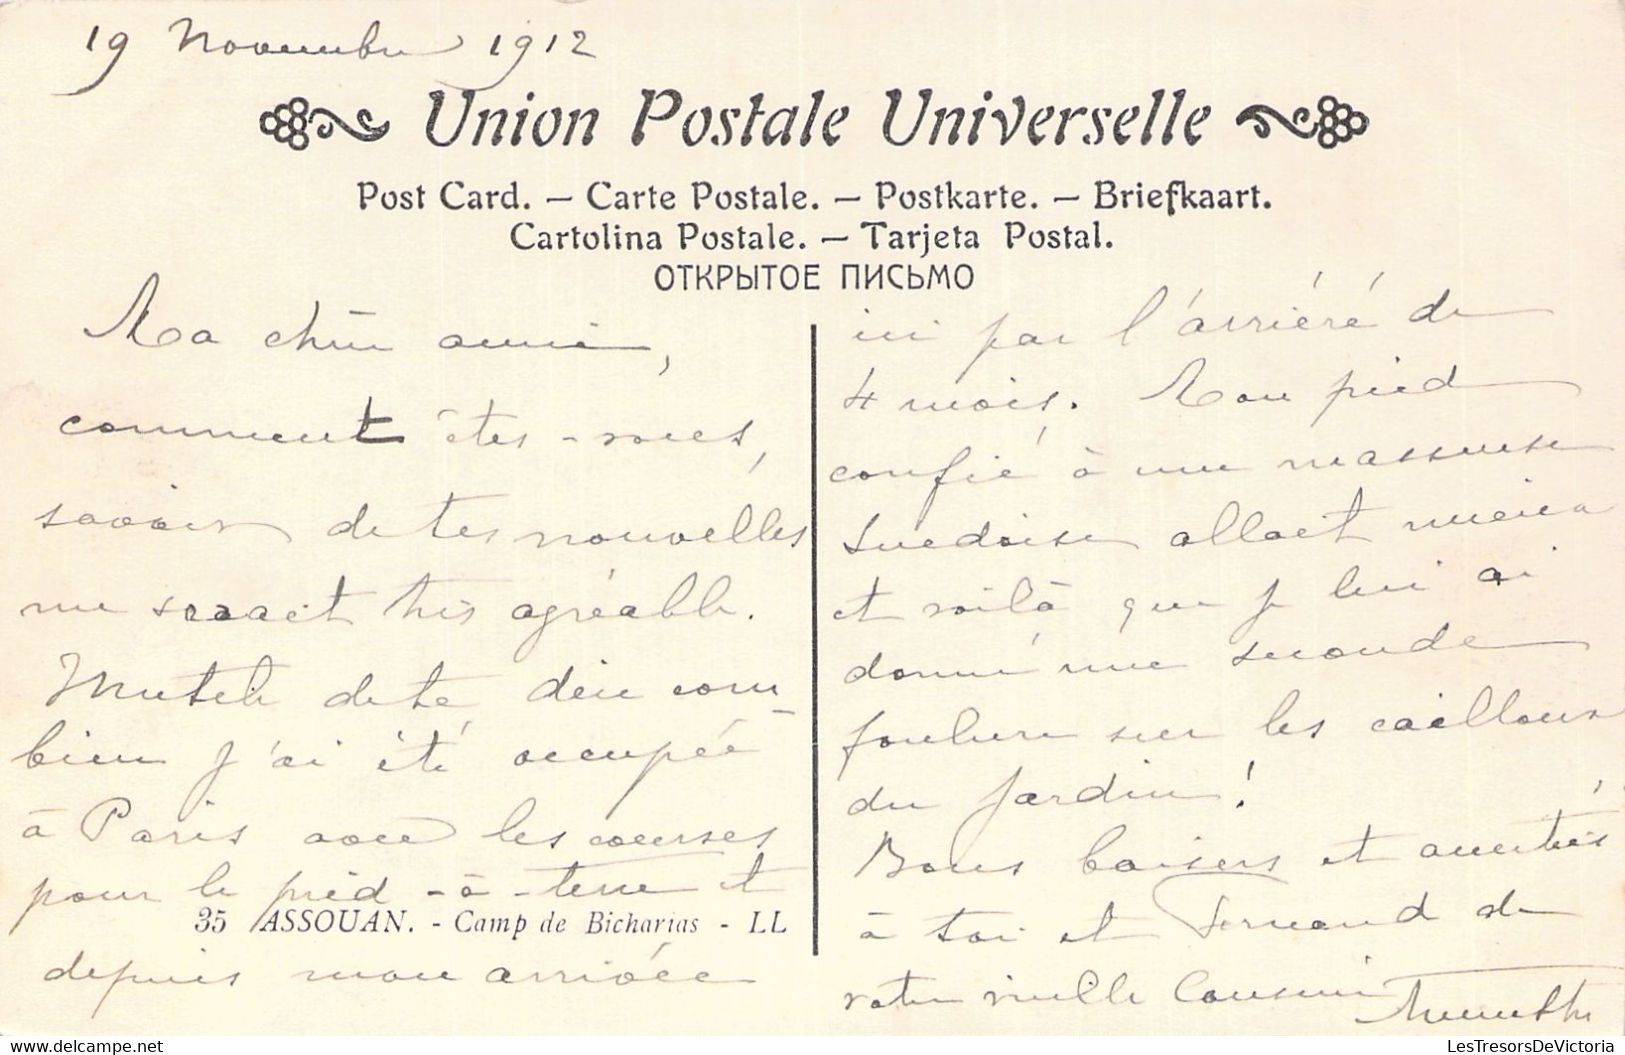 19 Novembre 1912
Union Postale Universelle
Post Card. — Carte Postale. — Postkarte. — Briefkaart.
Cartolina Postale. — Tarjeta Postal.
ОТКРЫТОЕ ПИСЬМО
Ma chère amie,
comment êtes-vous,
savoir de tes nouvelles
me serait très agréable.
de te dire com
bien j'ai été occupée
à Paris avec les courses
pour le pied-à-terre et
35 ASSOUAN. - Camp de Bicharias - LL
depuis mon arrivée
ici par l'arriéré de
4 mois. Mon pied
confié à une masseuse
Suedoise allait mieux
et voilà que je lui ai
donné une seconde
foulure sur les cailloux
du jardin!
Bons baisers et amitiés
à toi et Fernand de
votre vieille Cousine
www.delcampe.net
LesTresorsDeVictoria